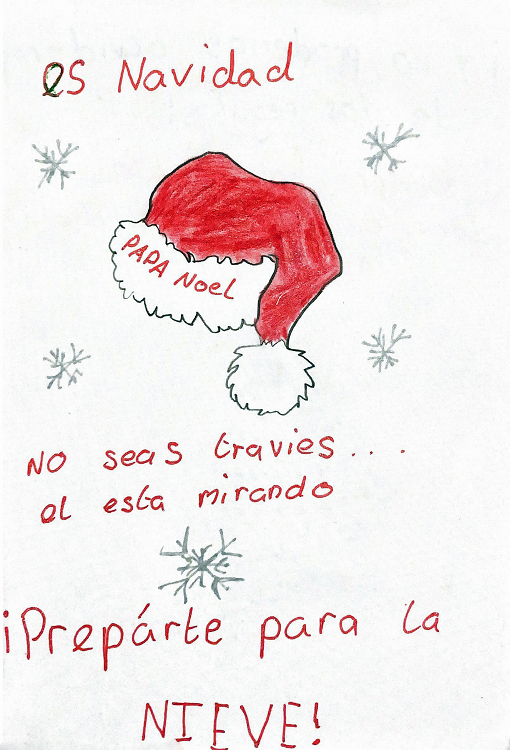 es Navidad
PAPA Noel
No seas travies....
el esta mirando
¡Prepárte para la
NIEVE!